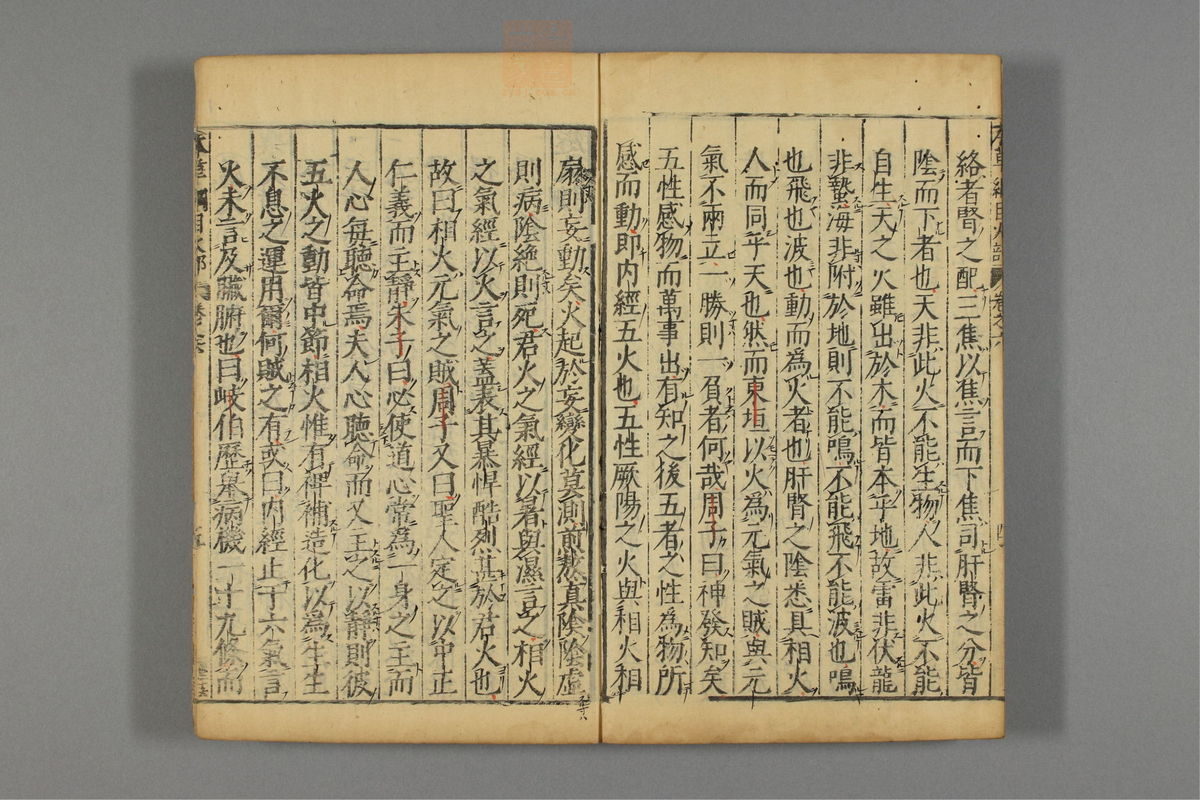 絡者腎之配三焦以焦言而下焦司肝腎之分皆
陰而下者也天非此火不能生物人非此火不能
自生天之火雖出於木而皆本乎地故雷非伏龍
非蟄海非附於地則不能鳴不能飛不能波也鳴
也飛也波也動而為火者也肝腎之陰悉具相火
人而同乎天也然而東垣以火為元氣之賊與元
氣不兩立一勝則一負者何哉周子曰神發知矣
五性感物而萬事出有知之後五者之性為物所
感而動即内經五火也五性厥陽之火與相火相
扇則妄動矣火起於妄變化莫測煎熬真陰陰虛
則病陰絕則死君火之氣經以暑與濕言之相火
之氣經以火言之蓋表其暴悍酷烈甚於君火也
故曰相火元氣之賊周子又曰聖人定之以中正
仁義而主靜朱子曰必使道心常為一身之主而
人心每聽命焉夫人心聽命而又主之以靜則彼
五火之動皆中節相火惟有裨補造化以為生生
不息之運用爾何賊之有或曰内經止于六氣言
火未言及臟腑也曰岐伯歷舉病機一十九條而